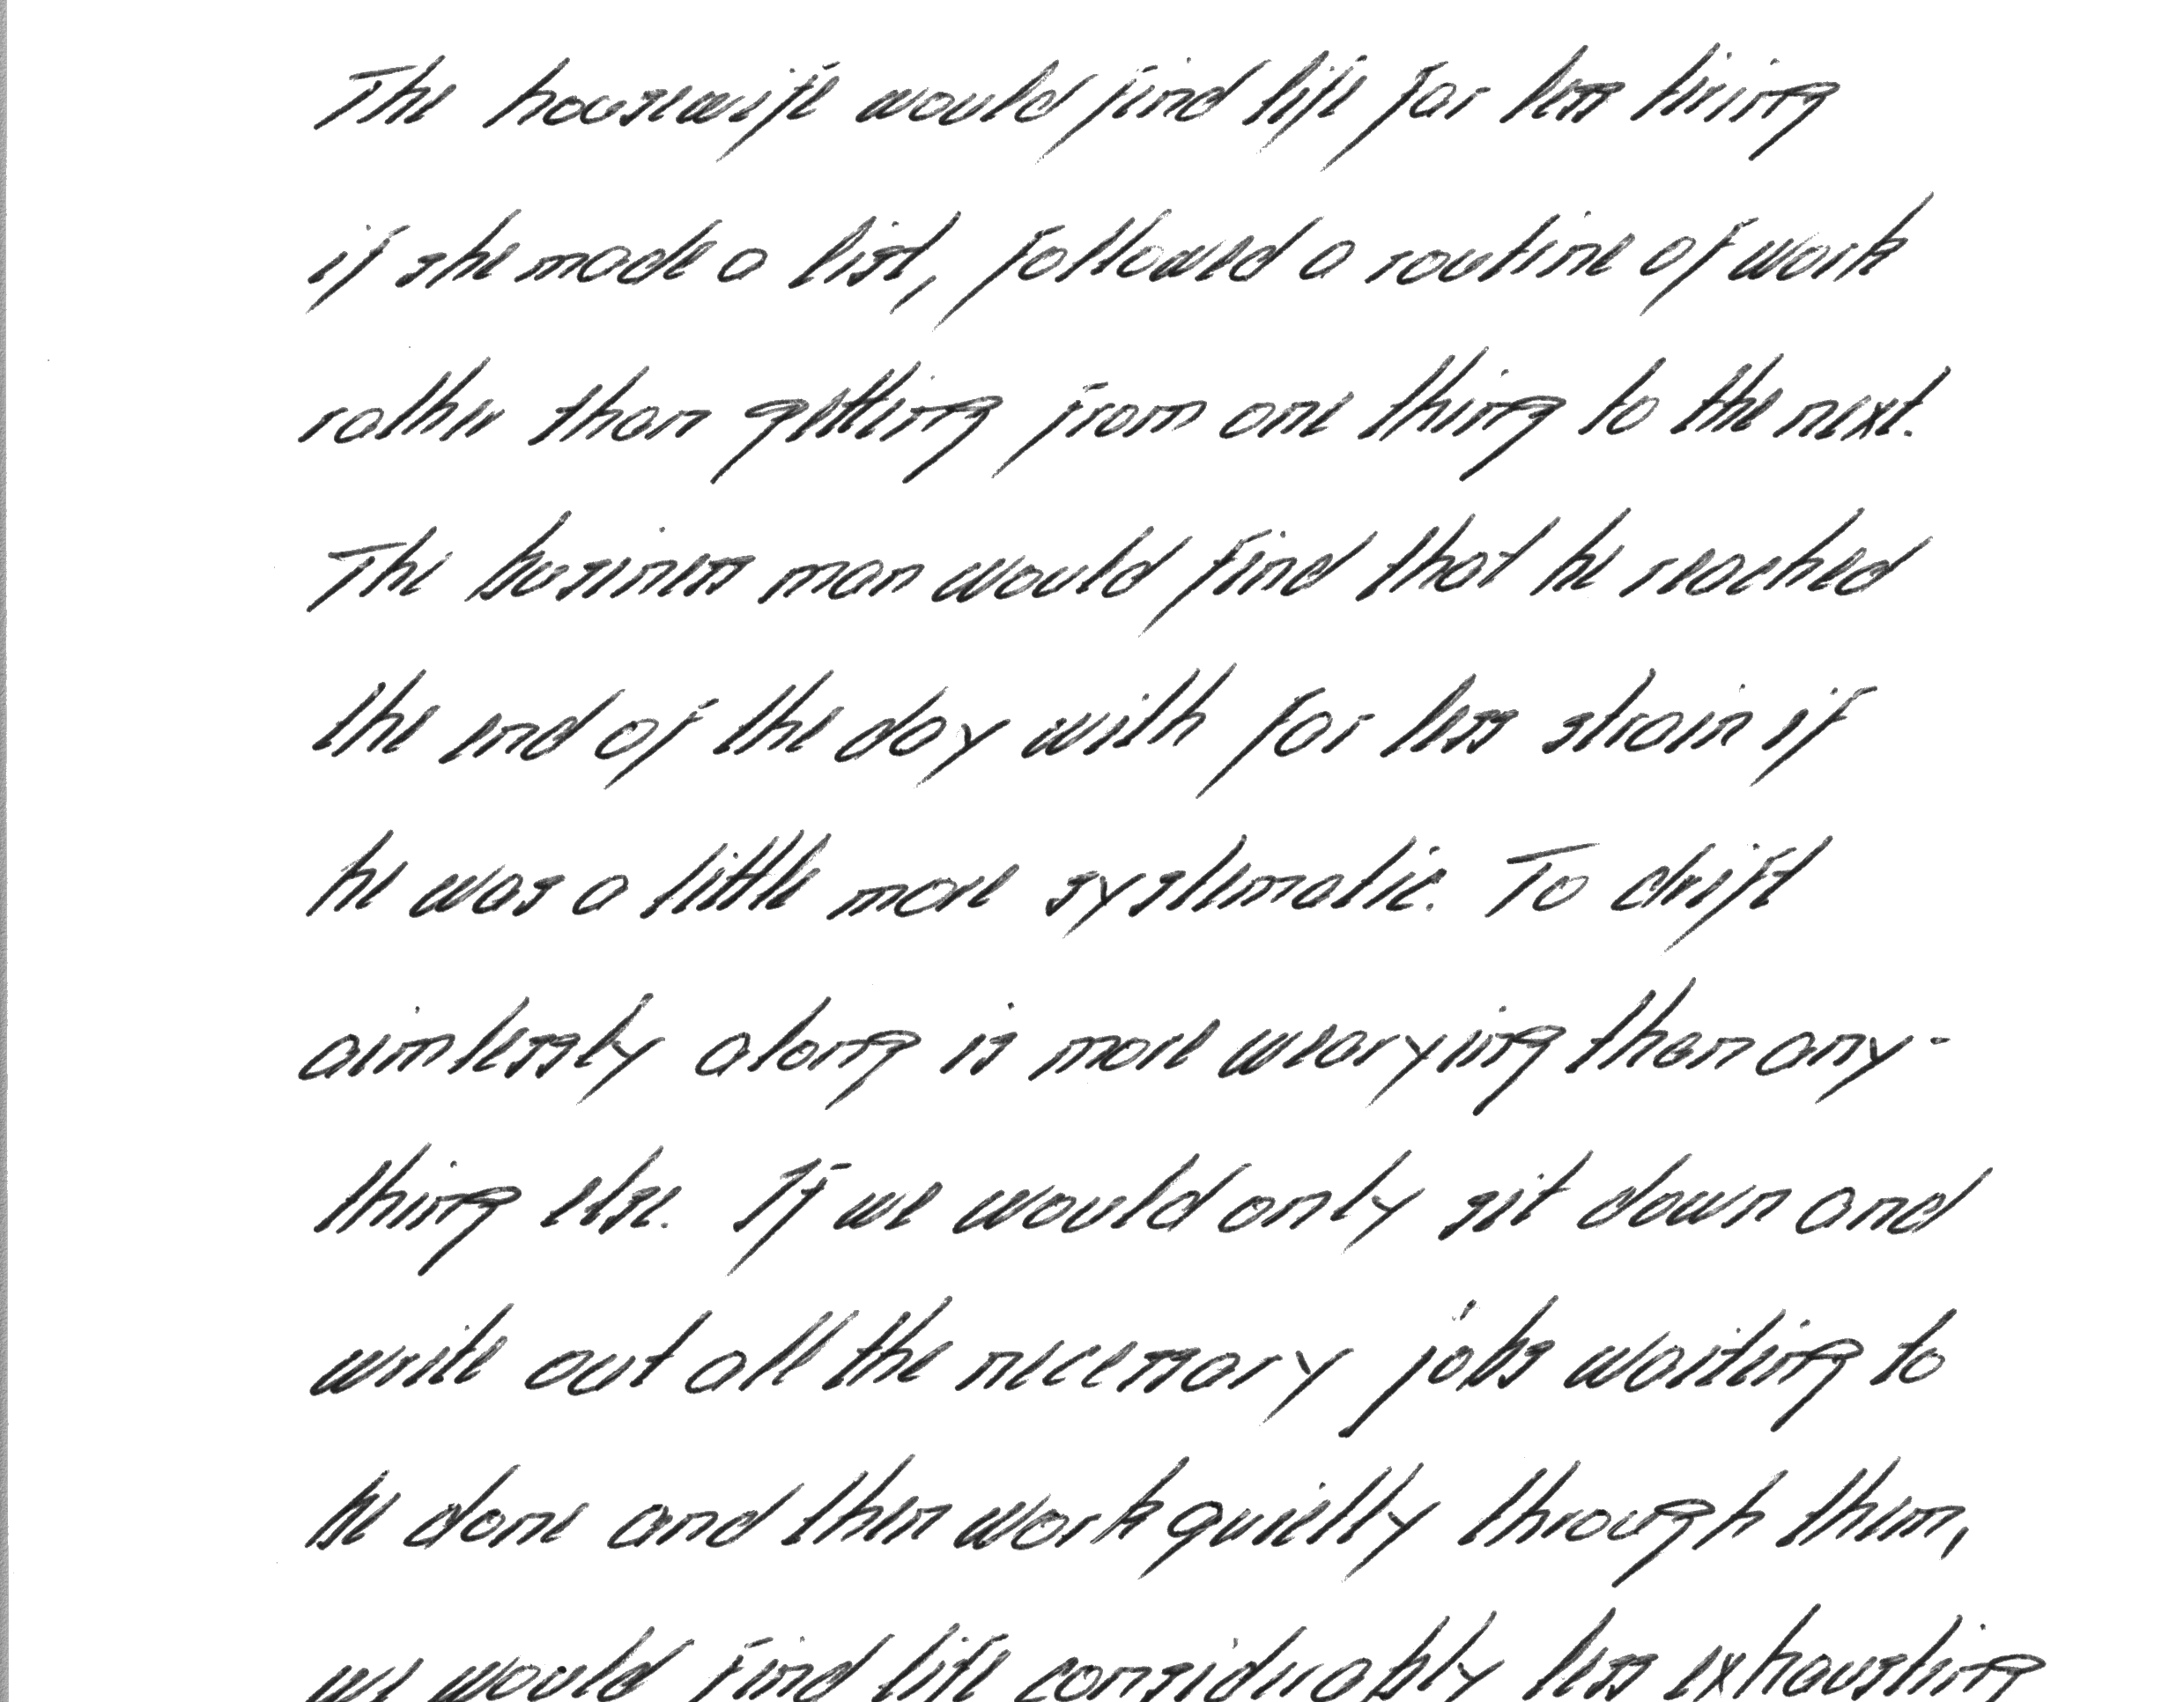 The housewife would find life far less tiring
if she made a list, followed a routine of work
rather than getting from one thing to the next.
The business man would find that he reached
the end of the day with far less strain if
he was a little more systematic. To drift
aimlessly along is more wearying than any-
thing else. If we would only sit down and
write out all the necessary jobs waiting to
be done and then work quietly through them,
we would find life considerably less exhausting